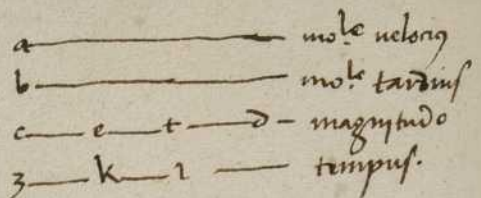 a mo.le velocius
b mo.le tardius
c e t d magnitudo
z k l tempus.